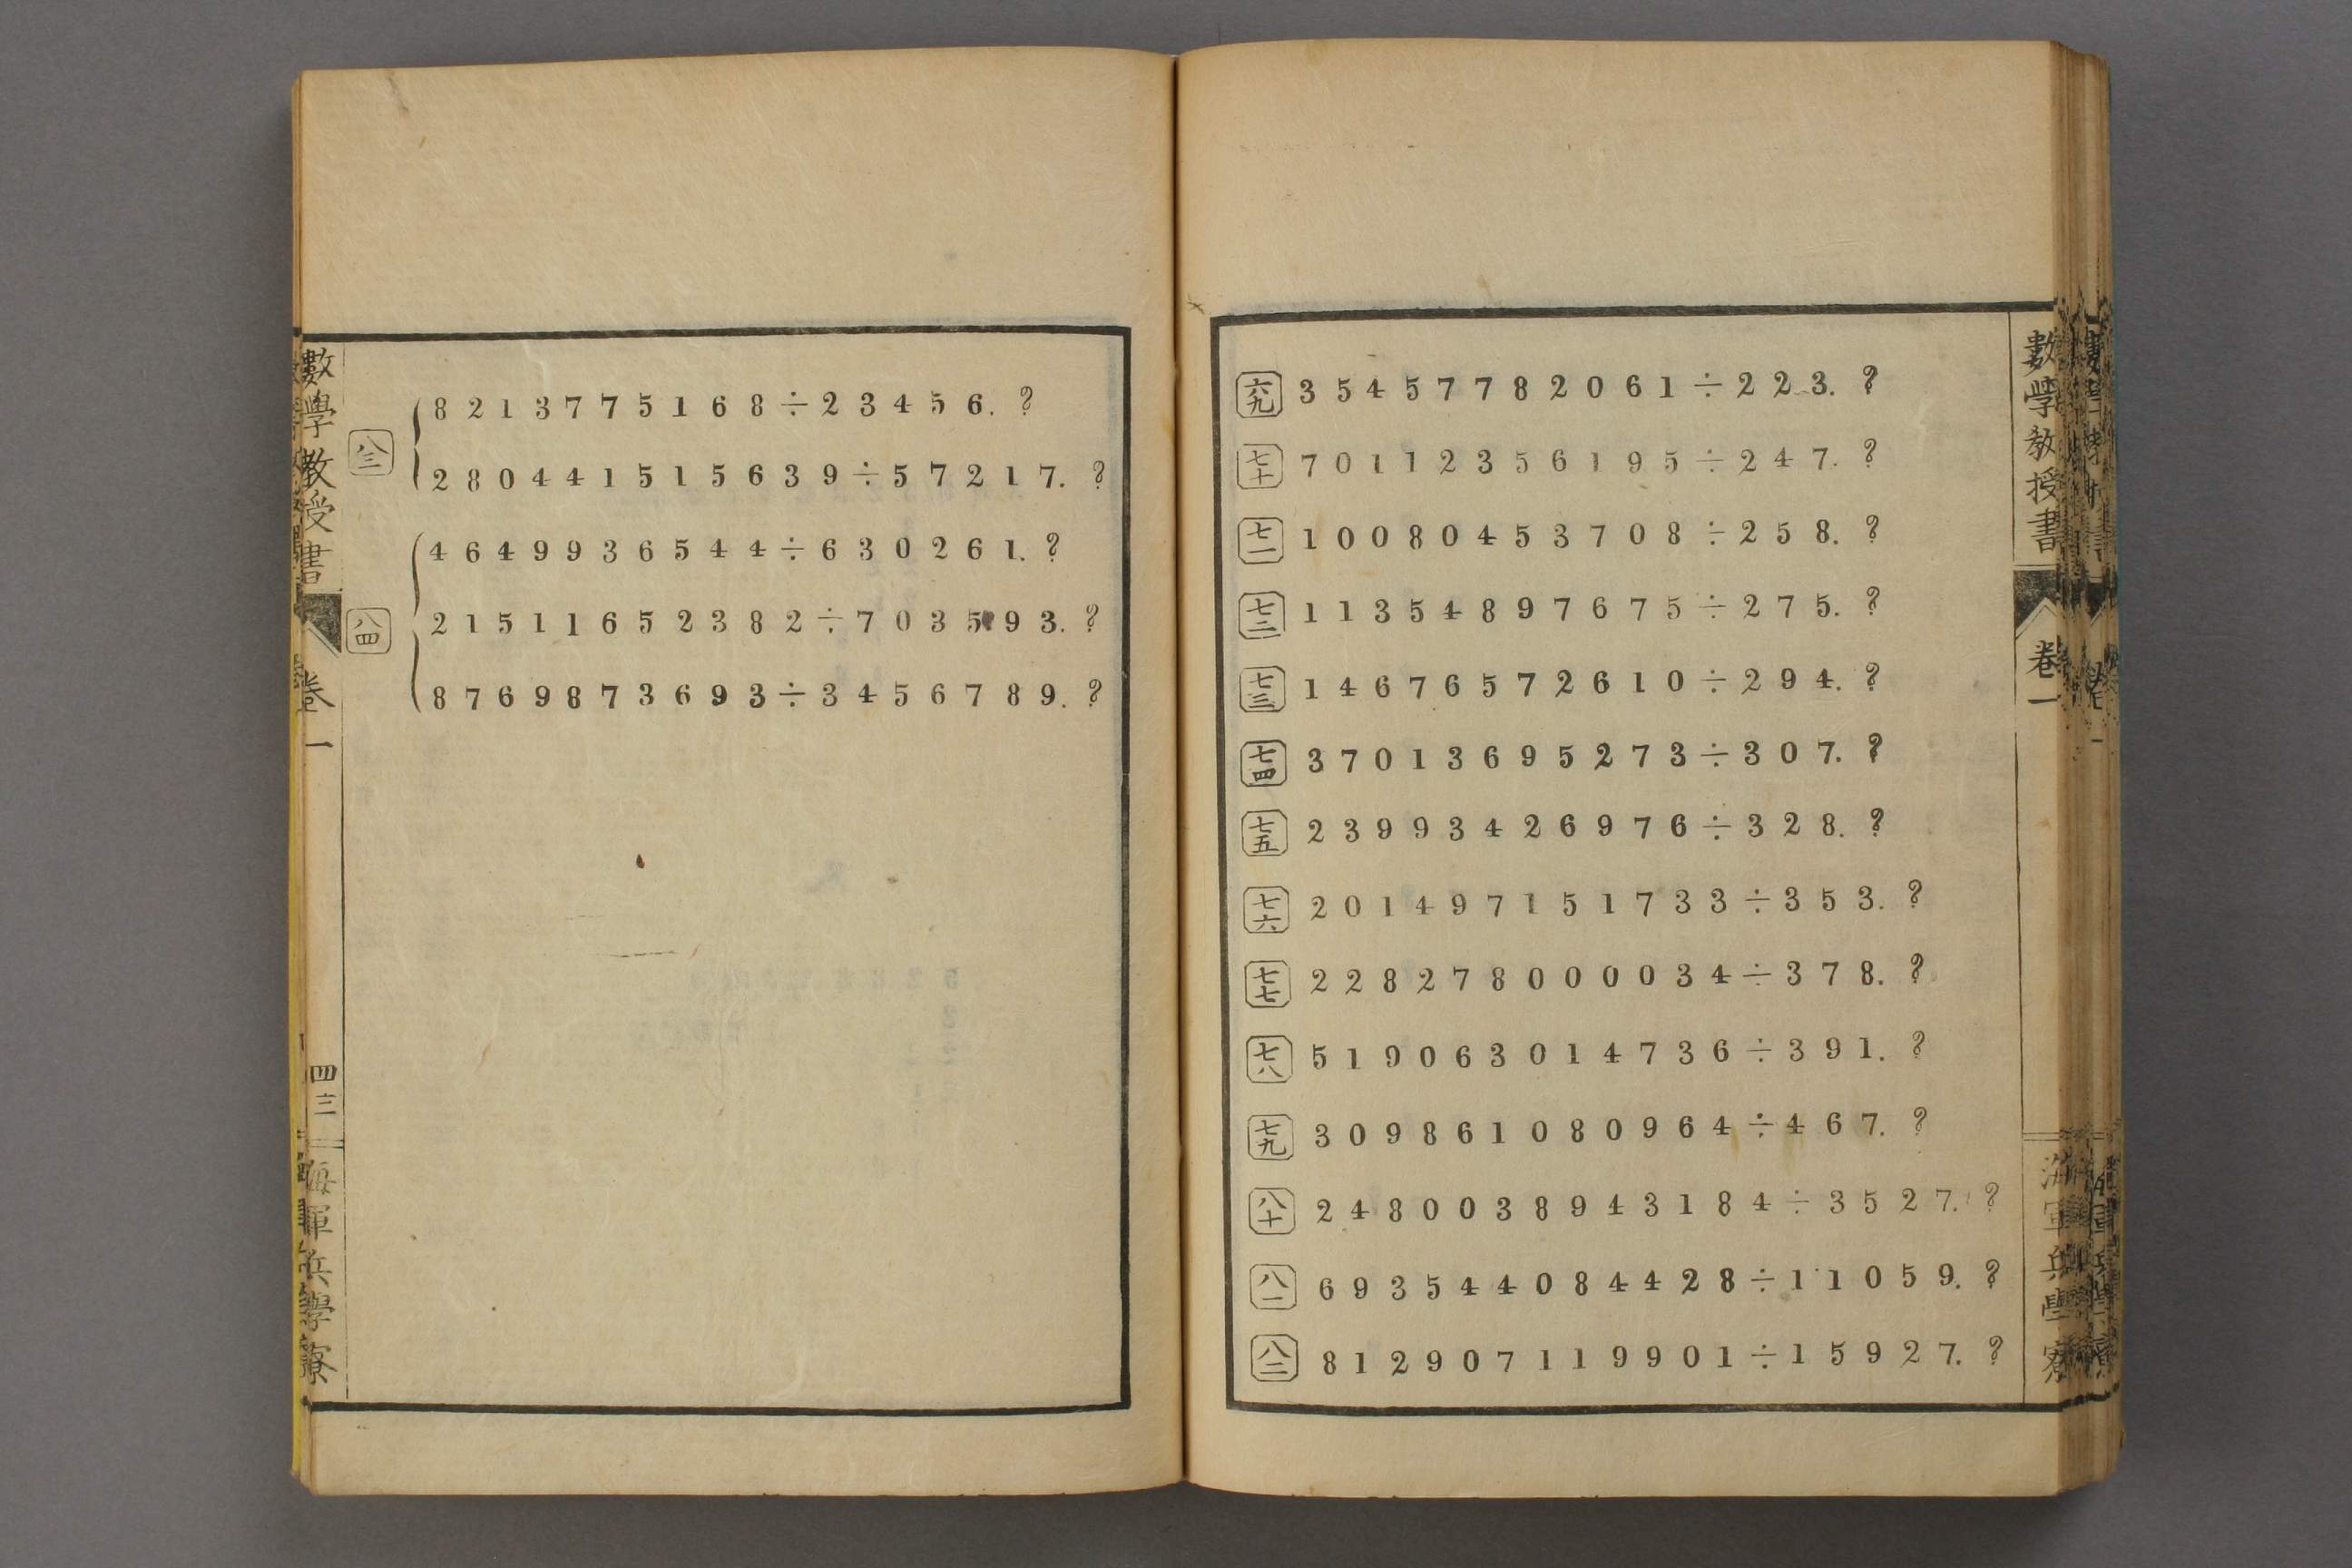 數學教授書
卷一
海軍兵學寮
六九 35457782061÷223. ?
七十 70112356195÷247. ?
七一 10080453708÷258. ?
七二 11354897675÷275. ?
七三 14676572610÷294. ?
七四 37013695273÷307. ?
七五 23993426976÷328. ?
七六 201497151733÷353. ?
七七 228278000034÷378. ?
七八 519063014736÷391. ?
七九 309861080964÷467. ?
八十 2480038943184÷3527. ?
八一 693544084428÷11059. ?
八二 812907119901÷15927. ?
八三 8213775168÷23456. ?
280441515639÷57217. ?
八四 4649936544÷630261. ?
21511652382÷703593. ?
8769873693÷3456789. ?
數學教授書
卷一
四三
海軍兵學寮